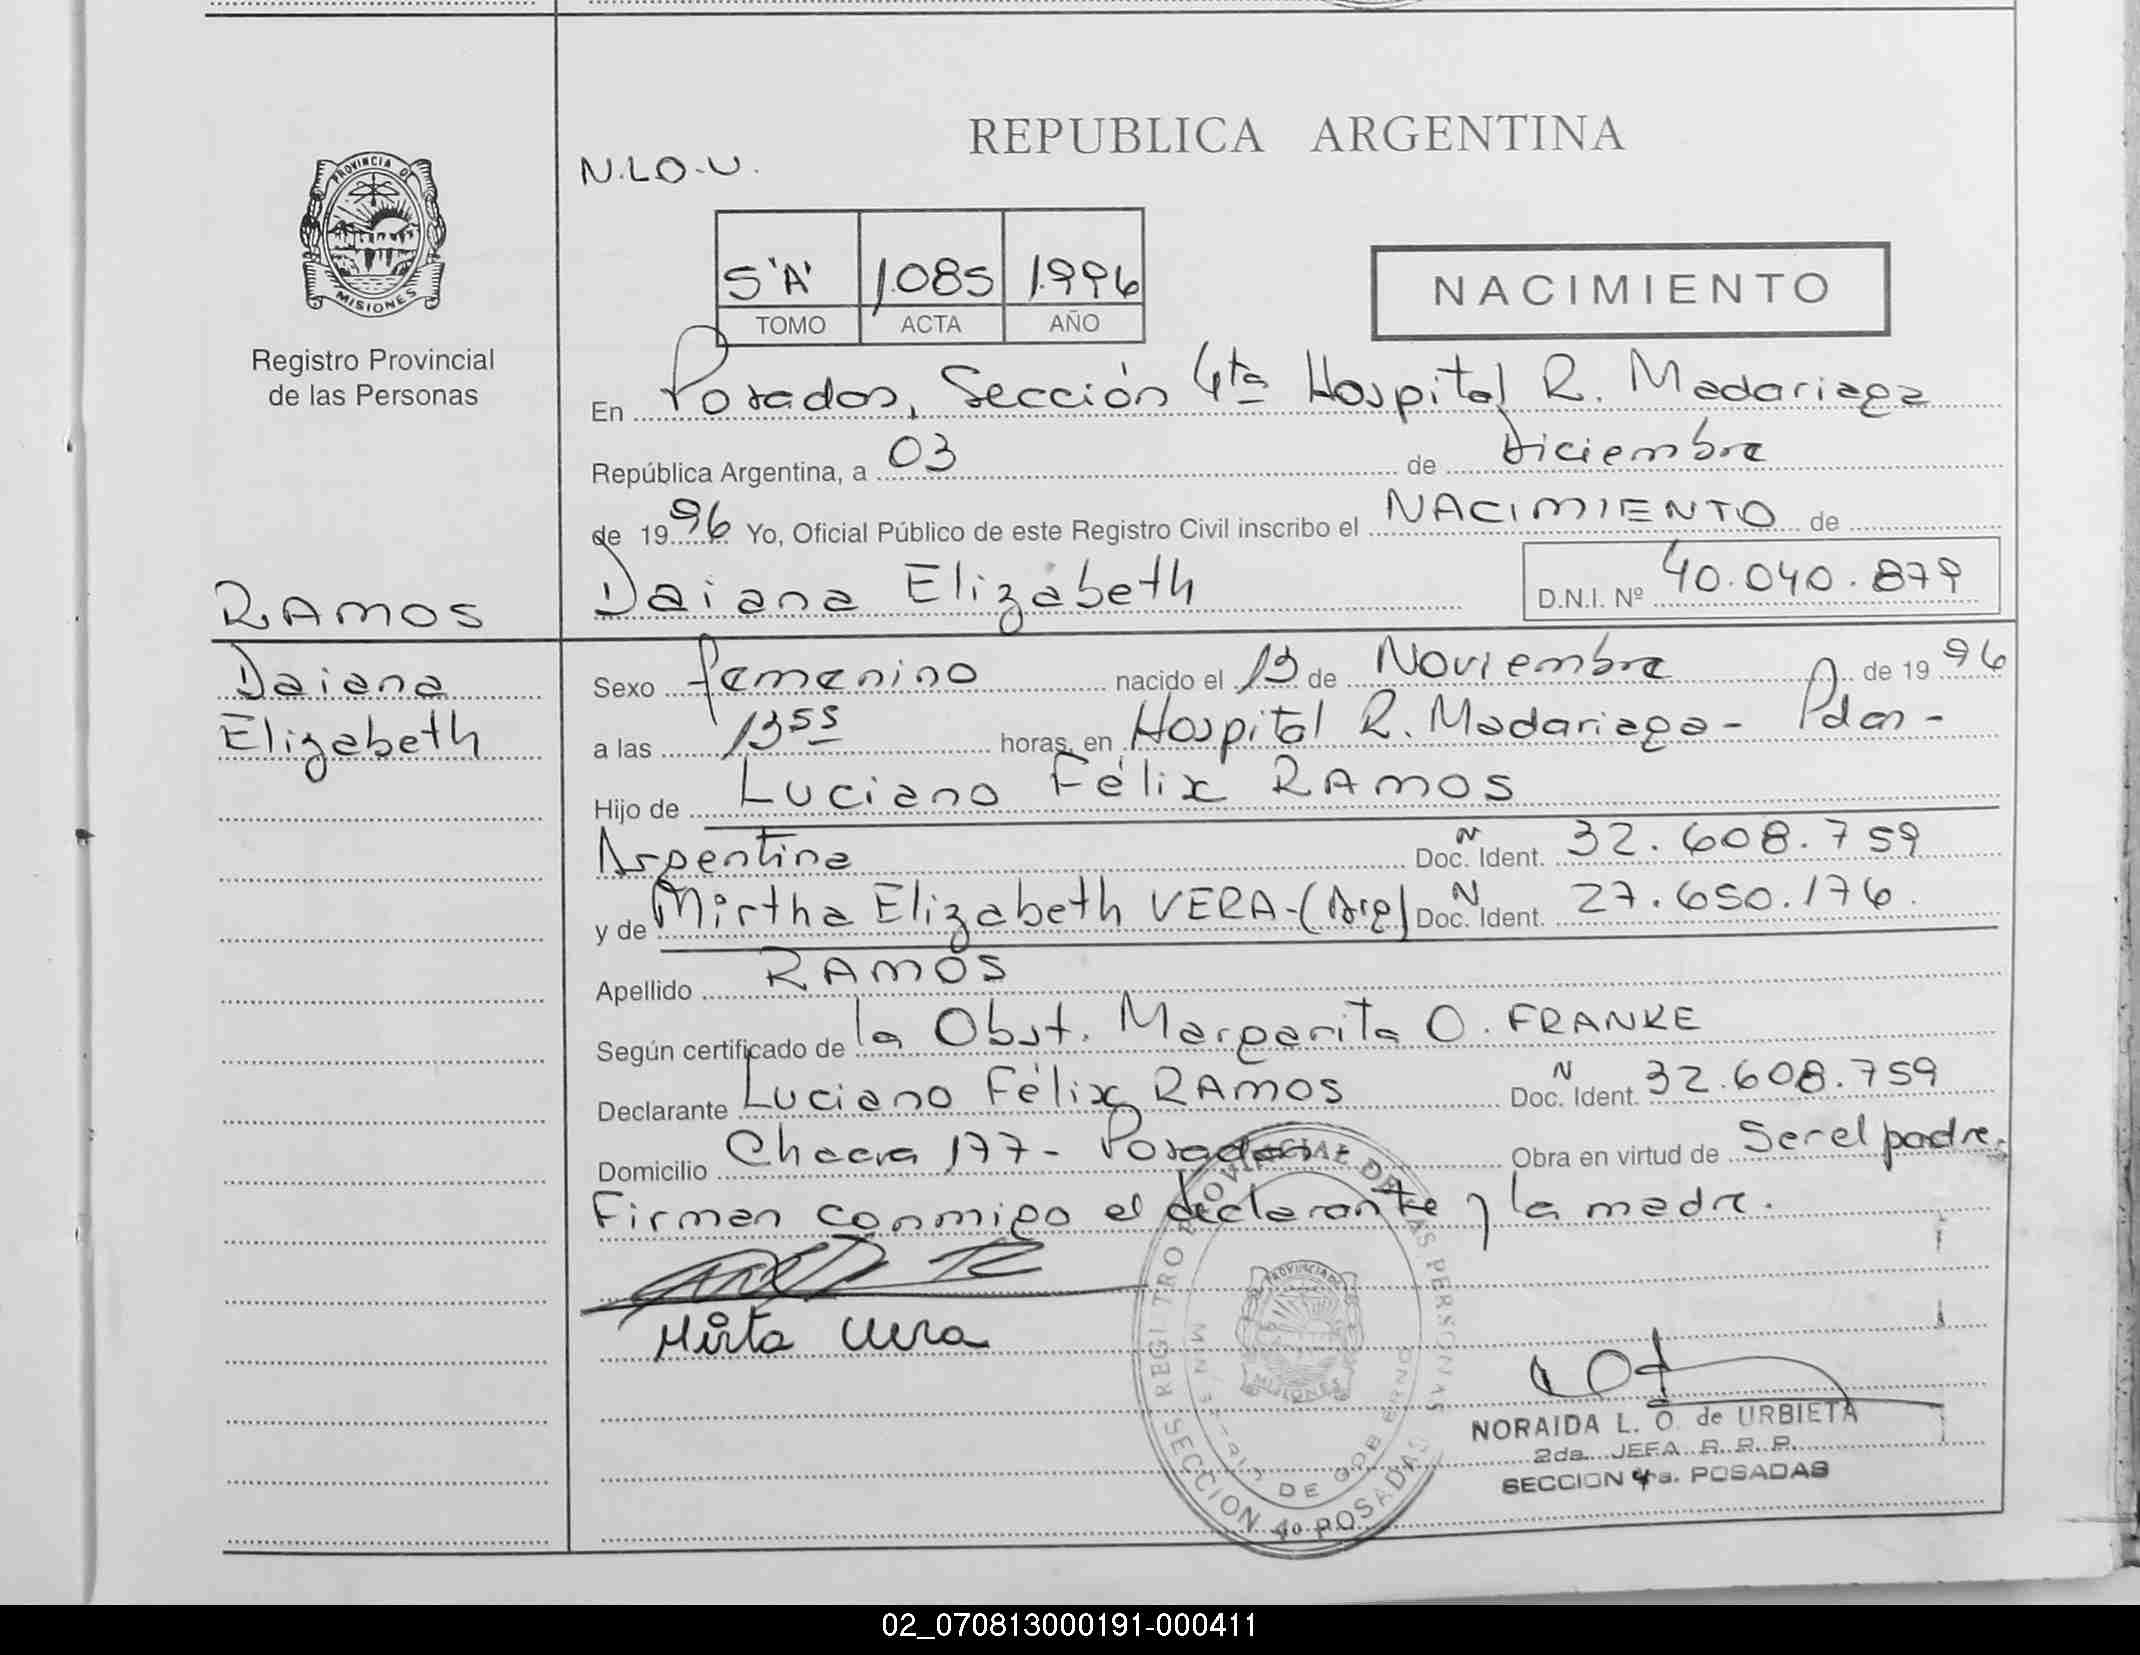 REPUBLICA ARGENTINA
N.I.O.U.
PROVINCIA DE
MISIONES
Registro Provincial
de las Personas
5 'A' 1.085 1.996
TOMO ACTA AÑO
NACIMIENTO
En Posadas, Sección 4ta Hospital R. Madariaga
República Argentina, a 03 de Diciembre
de 1996 Yo, Oficial Público de este Registro Civil inscribo el NACIMIENTO de
Daiana Elizabeth D.N.I. Nº 40.040.879
RAMOS
Daiana
Elizabeth
Sexo femenino nacido el 13 de Noviembre de 1996
a las 13 55 horas, en Hospital R. Madariaga - Pdas -
Hijo de Luciano Félix RAMOS
Argentina N Doc. Ident. 32.608.759
y de Mirtha Elizabeth VERA - (Arg) N Doc. Ident. 27.650.176.
Apellido RAMOS
Según certificado de la Obst. Margarita O. FRANKE
Declarante Luciano Félix RAMOS N Doc. Ident. 32.608.759
Domicilio Chacra 177 - Posadas - Obra en virtud de Ser el padre.
Firman conmigo el declarante y la madre.
Mirta Vera
REGISTRO PROVINCIAL DE LAS PERSONAS
MINISTERIO DE GOBIERNO
PROVINCIA DE
MISIONES
SECCION 4a POSADAS
NORAIDA L. O. de URBIETA
2da. JEFA R. P. P.
SECCION 4ta. POSADAS
02_070813000191-000411